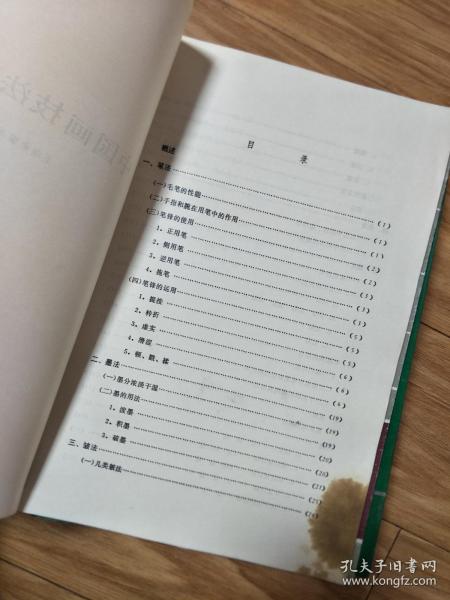 中国画技法
目 录
概述
一、笔法 ……………………(1)
(一)毛笔的性能 ……………………(1)
(二)手指和腕在用笔中的作用 ……………………(1)
(三)笔锋的使用 ……………………(2)
1、正用笔 ……………………(2)
2、侧用笔 ……………………(3)
3、逆用笔 ……………………(3)
4、拖笔 ……………………(3)
(四)笔锋的运用 ……………………(5)
1、提按 ……………………(5)
2、转折 ……………………(5)
3、虚实 ……………………(6)
4、滑涩 ……………………(6)
5、顿、戳、揉 ……………………(6)
二、墨法 ……………………(19)
(一)墨分浓淡干湿 ……………………(19)
(二)墨的用法 ……………………(19)
1、泼墨 ……………………(20)
2、积墨 ……………………(20)
3、破墨 ……………………(21)
三、皴法 ……………………(23)
(一)几类皴法 ……………………(24)
孔夫子旧书网
www.kongfz.com